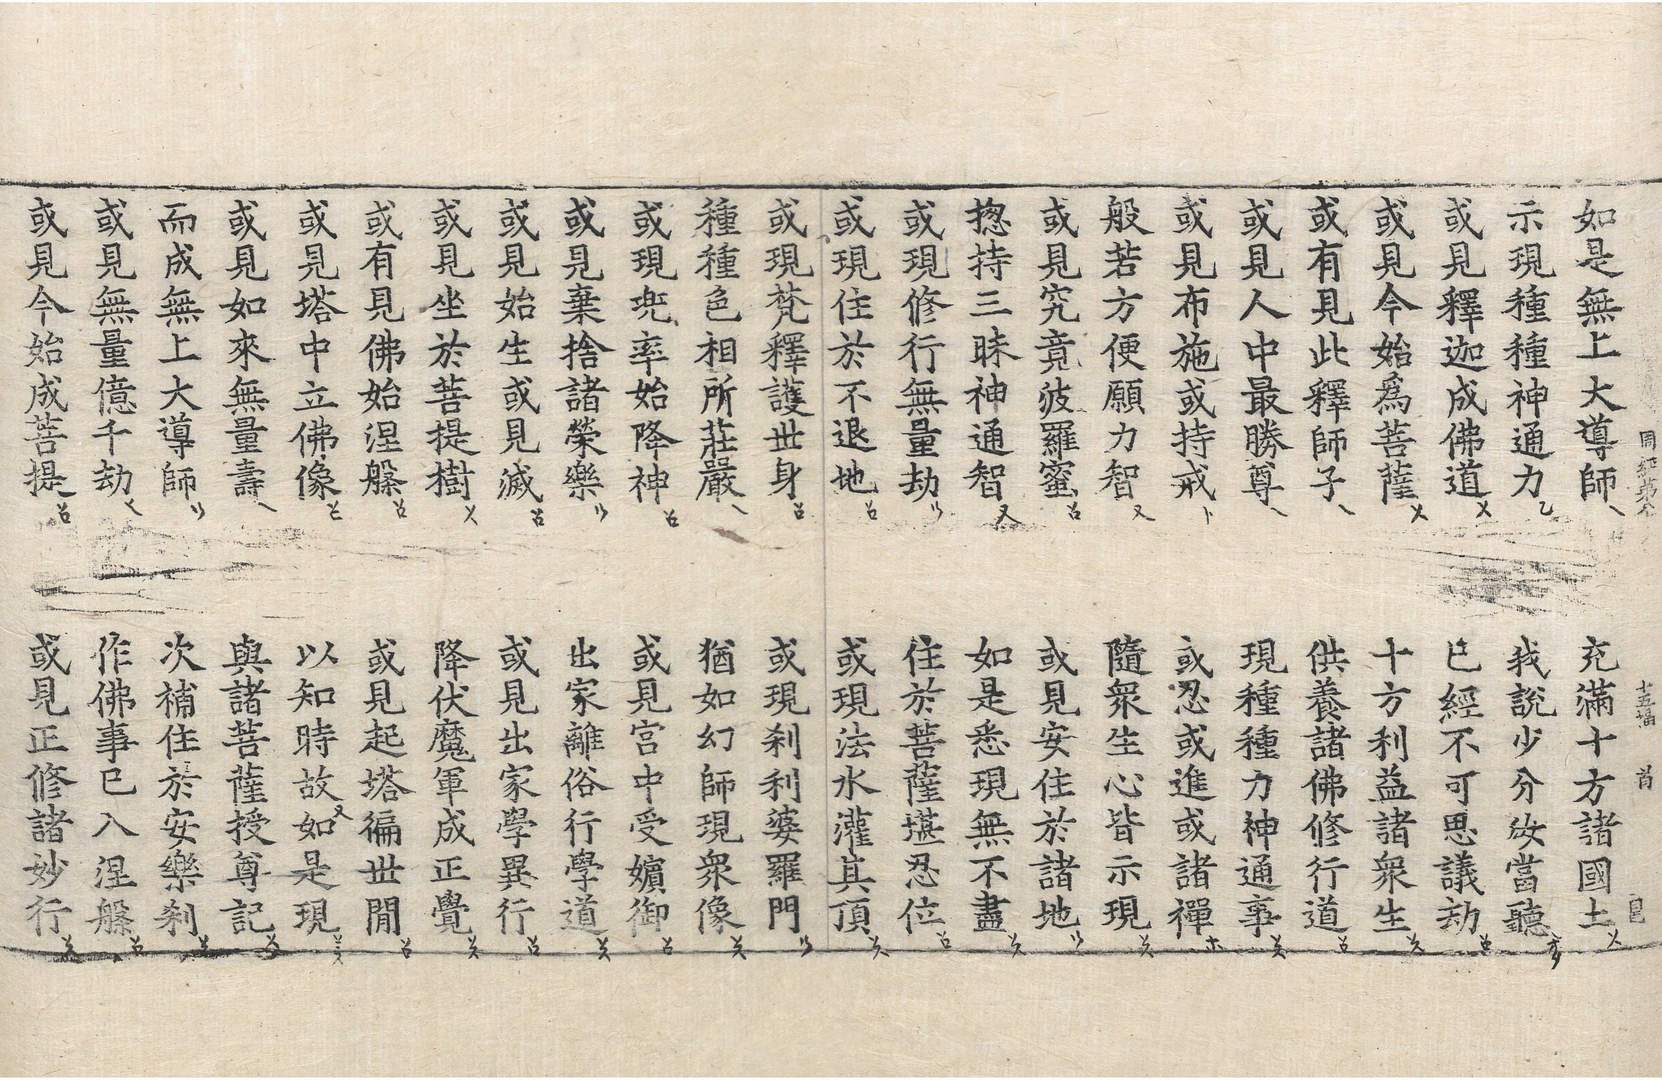 如是無上大導師
充滿十方諸國土
示現種種神通力
我說少分汝當聽
或見釋迦成佛道
已經不可思議劫
或見今始為菩薩
十方利益諸衆生
或有見此釋師子
供養諸佛修行道
或見人中最勝尊
現種種力神通事
或見布施或持戒
或忍或進或諸禪
般若方便願力智
隨衆生心皆示現
或見究竟波羅蜜
或見安住於諸地
揔持三昧神通智
如是悉現無不盡
或現修行無量劫
住於菩薩堪忍位
或現住於不退地
或現法水灌其頂
或現梵釋護世身
或現刹利婆羅門
種種色相所莊嚴
猶如幻師現衆像
或現兜率始降神
或見宮中受嬪御
或見棄捨諸榮樂
出家離俗行學道
或見始生或見滅
或見出家學異行
或見坐於菩提樹
降伏魔軍成正覺
或有見佛始涅槃
或見起塔徧世間
或見塔中立佛像
以知時故如是現
或見如來無量壽
與諸菩薩授尊記
而成無上大導師
次補住於安樂刹
或見無量億千劫
作佛事已入涅槃
或見今始成菩提
或見正修諸妙行